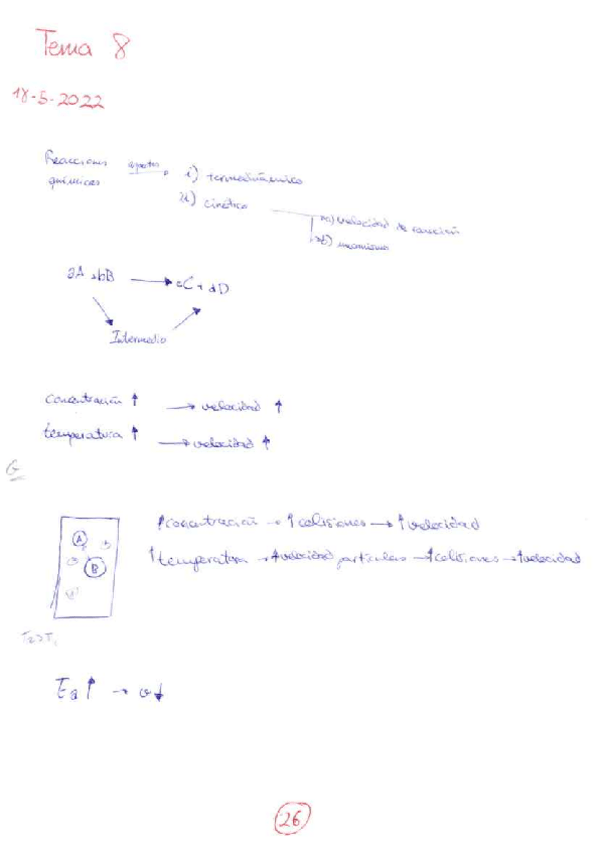 Tema 8
18-5-2022
Reacciones aspectos i) termodinámico
químicas
ii) cinético
a) velocidad de reacción
b) mecanismo
aA + bB → cC + dD
Intermedio
Concentración ↑ → velocidad ↑
temperatura ↑ → velocidad ↑
G
A
B
↑ concentración → ↑ colisiones → ↑ velocidad
↑ temperatura → ↑ velocidad partículas → ↑ colisiones → ↑ velocidad
T2>T1
Ea ↑ → v ↓
26